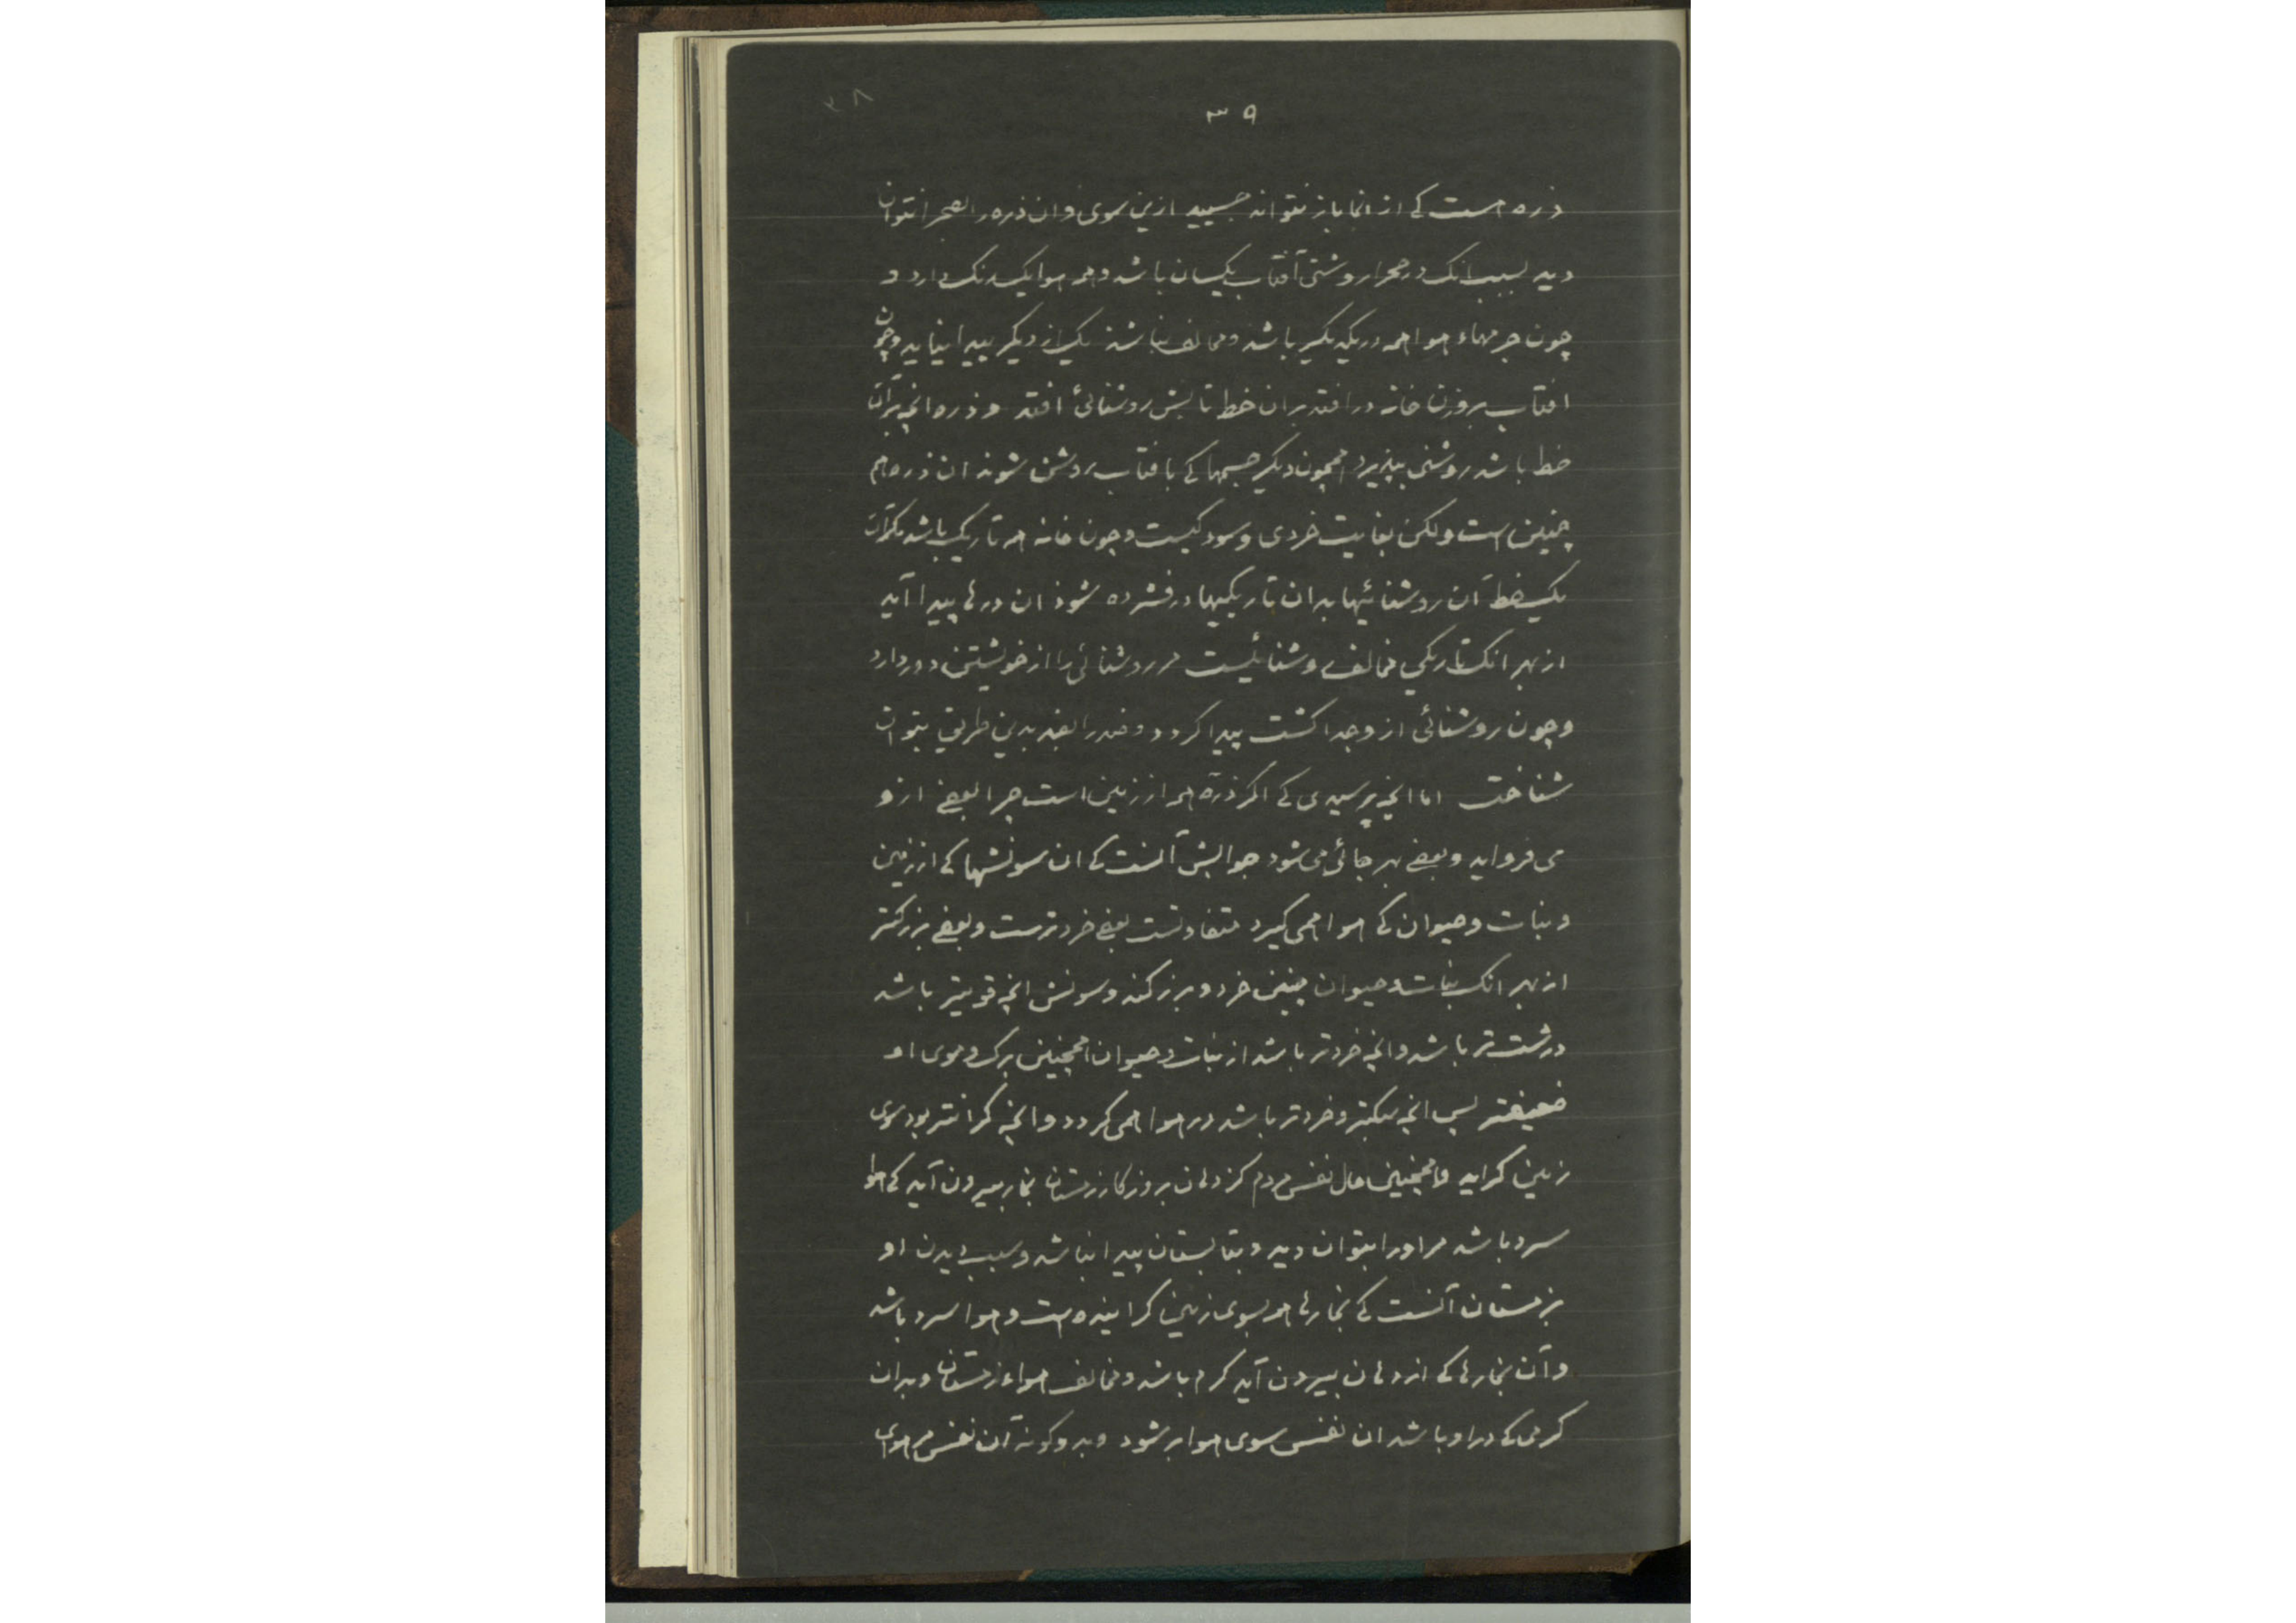 ۳۹
۳۸
ذره است کی از انجا باز نتواند جسبید ازین سوی و ان ذره را بصحرا نتوان
دید بسبب انک در صحرا روشنی آفتاب یکسان باشد و همه هوا یک رنک دارد و
چون جرمهاء هوا همه در یکدیکر باشد و مخالف نباشد یک از دیکر پیدا نیاید و چون
افتاب بروزن خانه در افتد بران خط تابش روشنائی افتد و ذره انچ بران
خط باشد روشنی بپذیرد همچون دیکر جسمها کی بافتاب روشن شوند ان ذره هم
چنین است ولکن بغایت خردی و سودکیست و چون خانه همه تاریک باشد مکر آن
یک خط آن روشنائیها بدان تاریکیها در فشرده شود ان ذرها پیدا آید
از بهر انک تاریکی مخالف روشنائیست مر روشنائی را از خویشتن دور دارد
و چون روشنائی ازو جدا کشت پیدا کردد و ضد را بضد بدین طریق بتوان
شناخت اما انچ پرسیدی کی اکر ذره همه از زمین است چرا بعضی ازو
می فرو اید و بعضی بهر جائی می شود جوابش آنست کی ان سونشها کی از زمین
و نبات و حیوان کی هوا همی کیرد متفاوتست بعضی خردترست و بعضی بزرکتر
از بهر انک نبات و حیوان چنین خرد و بزرکند و سونش انچ قویتر باشد
درشت تر باشد و انچ خردتر باشد از نبات و حیوان همچنین برک و موی او
ضعیفتر پس انچ سبکتر و خردتر باشد در هوا همی کردد و انچ کرانتر بود سوی
زمین کراید و همچنین حال نفس مردم کز دهان بروزکار زمستان بخار بیرون آید کی هوا
سرد باشد مر اورا بتوان دید و بتابستان پیدا نباشد و سبب دیدن او
بزمستان آنست کی بخارها همه بسوی زمین کراینده است و هوا سرد باشد
و آن بخارها کی از دهان بیرون آید کرم باشد و مخالف هواء زمستان و بدان
کرمی کی در او باشد ان نفس سوی هوا بر شود و بدو کونه آن نفس مر هوای